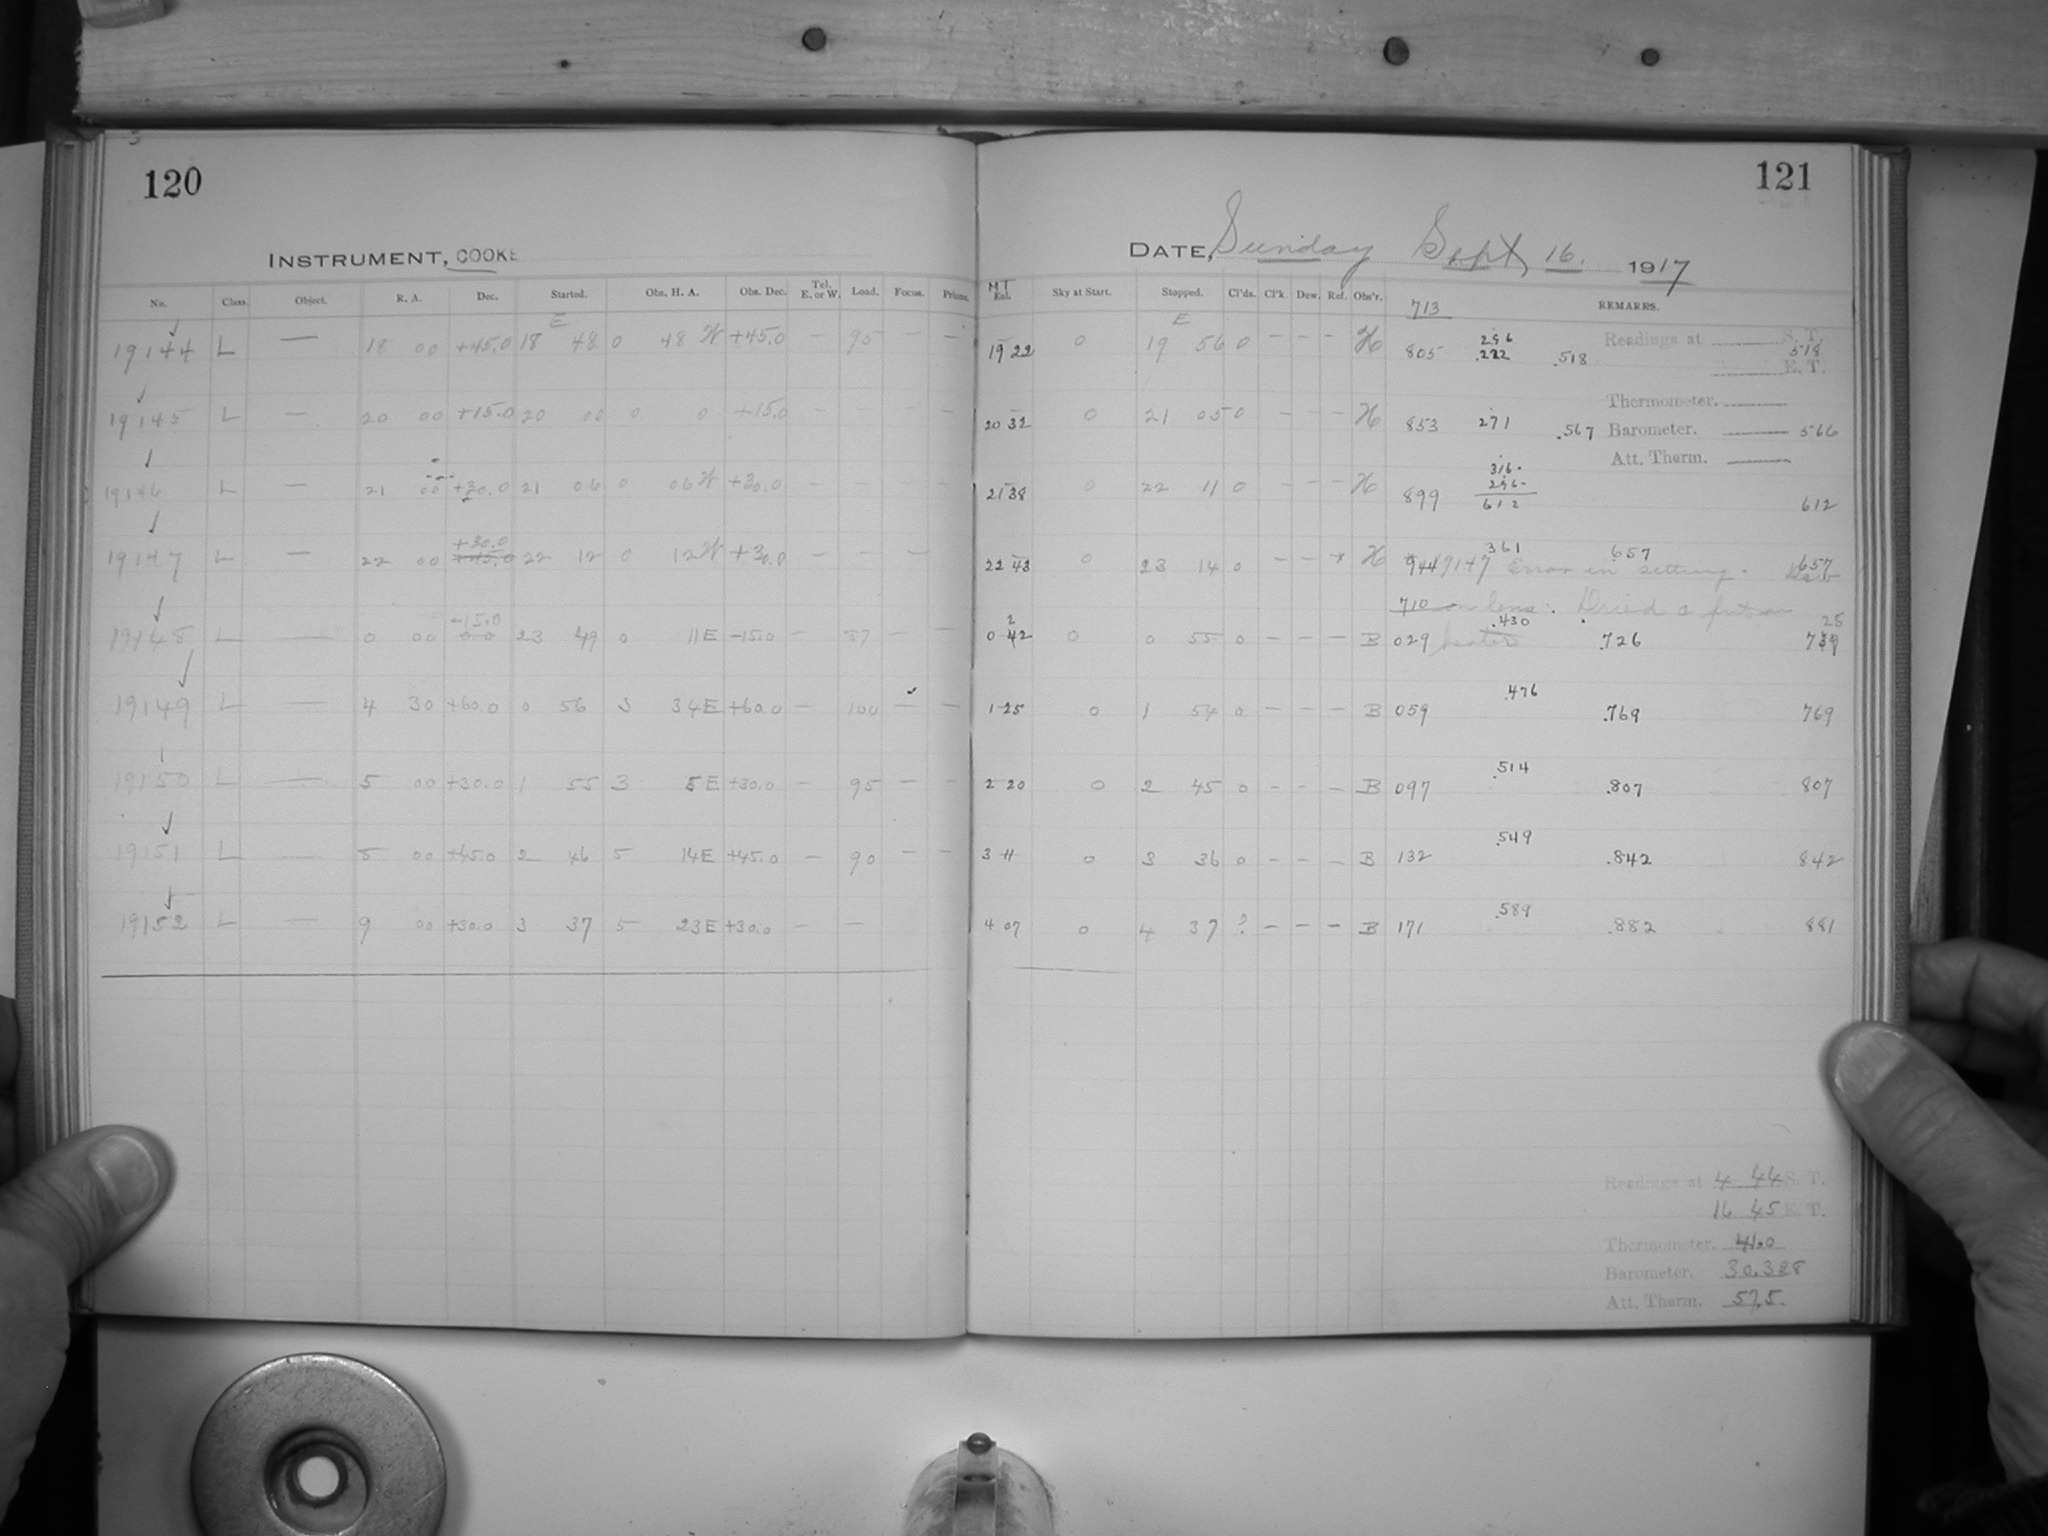 120
INSTRUMENT, COOKE
No. Class. Object. R. A. Dec. Started. Obs. H. A. Obs. Dec. Tel. E. or W. Load. Focus. Prism.
E
19144 L — 18 00 +45.0 18 48 0 48 W +45.0 — 95 — —
19145 L — 20 00 +15.0 20 00 0 0 +15.0 — — — —
19146 L — 21 00 +30.0 21 06 0 06 W +30.0 — — — —
+30.0
19147 L — 22 00 +45.0 22 12 0 12 W +30.0 — — —
-15.0
19148 L — 0 00 0 0 23 49 0 11 E -15.0 — 87 — —
19149 L — 4 30 +60.0 0 56 3 34 E +60.0 — 100 — —
19150 L — 5 00 +30.0 1 55 3 5 E +30.0 — 95 — —
19151 L — 8 00 +45.0 2 46 5 14 E +45.0 — 90 — —
19152 L — 9 00 +30.0 3 37 5 23 E +30.0 — —
121
DATE, Sunday Sept 16. 1917
M T
Sky at Start. Stopped. Cl'ds. Cl'k. Dew. Ref. Obs'r. 713 REMARKS.
E
19 22 0 19 56 0 — — — H 805 .518 518
Readings at S. T.
E. T.
20 32 0 21 05 0 — — — H 853 271 .567 566
Thermometer.
Barometer.
Att. Therm.
316
21 38 0 22 11 0 — — — H 899 296 612
612
361 657
22 43 0 23 14 0 — — H 944 9147 Error in setting. Dew 657
710 on lens. Dried & put on
2 .430 25
0 42 0 0 55 0 — — — B 029 heater .726 739
.476
1 25 0 1 54 0 — — — B 059 .769 769
.514
2 20 0 2 45 0 — — — B 097 .807 807
.549
3 11 0 3 36 0 — — — B 132 .842 842
.589
4 07 0 4 37 ? — — — B 171 .882 881
Readings at 4 44 S. T.
16 45 E. T.
Thermometer. 41.0
Barometer. 30.328
Att. Therm. 57.5